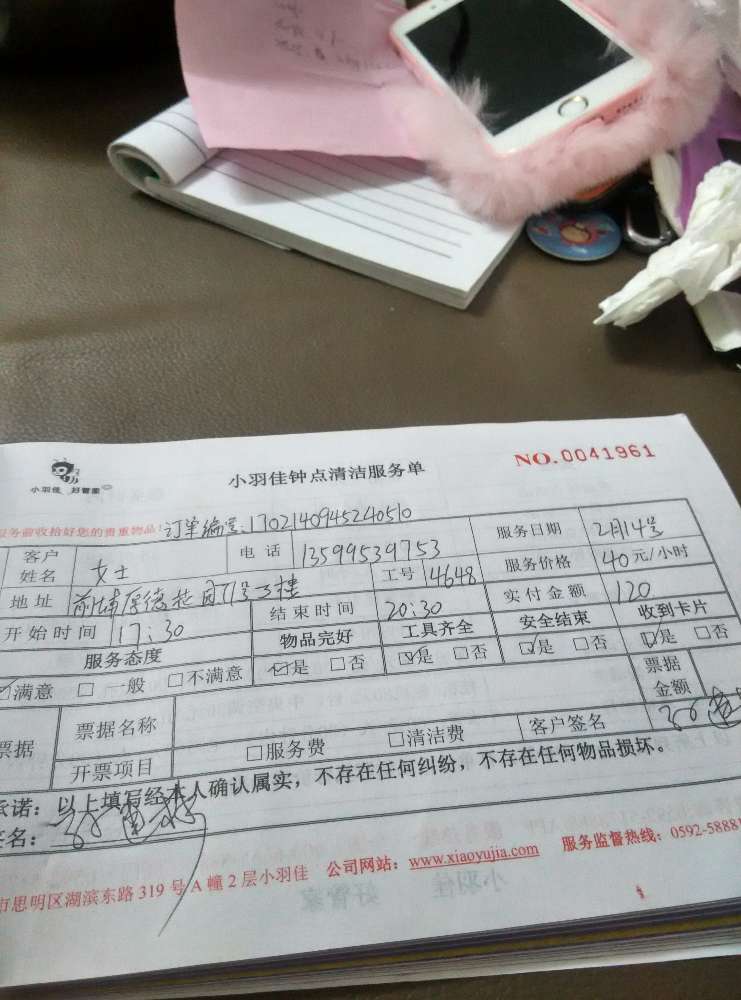 小羽佳 好管家
小羽佳钟点清洁服务单
NO.0041961
服务前收拾好您的贵重物品!
订单编号:1702140945240510
客户姓名 女士 电话 13599539753 服务日期 2月14号
地址 前埔 工号 4648 服务价格 40元/小时
开始时间 17:30 结束时间 20:30 实付金额 120
服务态度 物品完好 工具齐全 安全结束 收到卡片
☑满意 □一般 □不满意 ☑是 □否 ☑是 □否 ☑是 □否 ☑是 □否
票据 票据名称 票据金额
开票项目 □服务费 □清洁费 客户签名
承诺:以上填写经本人确认属实,不存在任何纠纷,不存在任何物品损坏。
签名:
市思明区湖滨东路 319 号 A 幢 2 层小羽佳 公司网站:www.xiaoyujia.com 服务监督热线:0592-58881